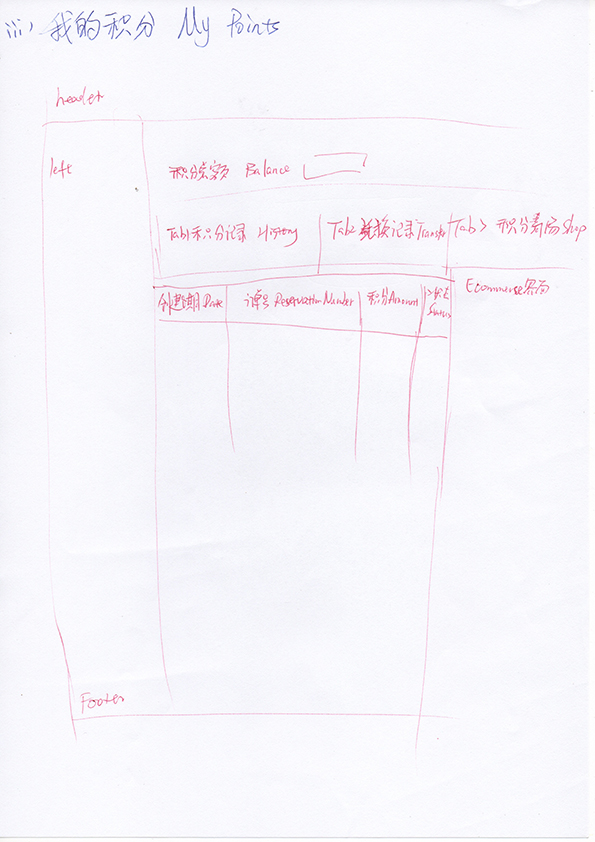 iii) 我的积分 My Points
header
left
积分余额 Balance
Tab1积分记录 History
Tab2 兑换记录 Transfer
Tab3 积分商店 Shop
创建日期 Date
订单号 Reservation Number
积分 Amount
状态 Status
Ecommerse界面
Footer